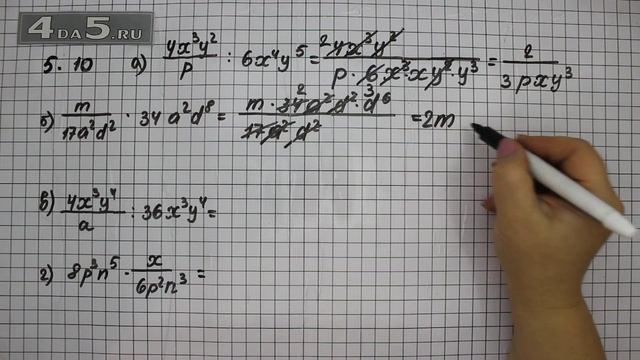 4DA5.RU
5.10 а) 4x³y²/p : 6x⁴y⁵ = ²4x³y²/p·6x³·xy²·y³ = 2/3pxy³
б) m/17a²d² · 34a²d⁸ = m·34²a²d²·d⁶/17a²d² = 2m
в) 4x³y⁴/a : 36x³y⁴ =
г) 8p³n⁵ · x/6p²n³ =